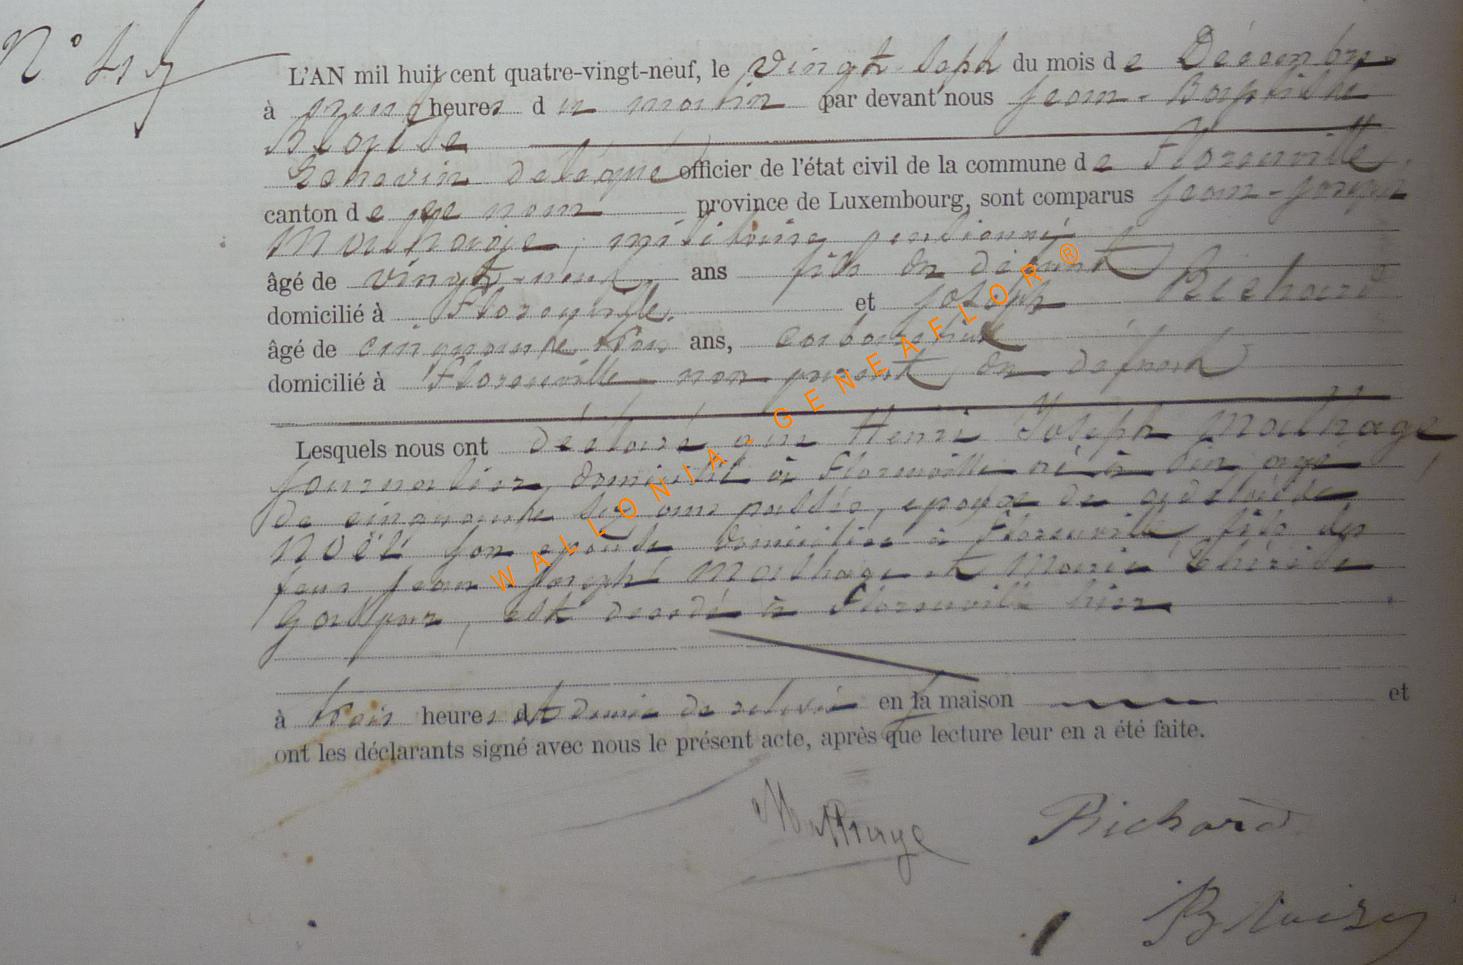 N°
L'AN mil huit cent quatre-vingt-neuf, le vingt sept du mois de Décembre
à neuf heures du matin par devant nous Jean-Baptiste
Blaise
Echevin délégué officier de l'état civil de la commune de Florenville
canton de ce nom province de Luxembourg, sont comparus Jean-Joseph
Mathaige, militaire pensionné
âgé de vingt-neuf ans fils du défunt
domicilié à Florenville. et Joseph Richard
âgé de cinquante ans, 
domicilié à Florenville non parent du défunt
Lesquels nous ont déclaré que Henri Joseph Mathage
journalier, domicilié à Florenville né à âgé
de cinquante six ans passés, époux de
Noël son épouse domiciliée à Florenville, fils des
feux Jean Joseph Mathage et Marie Thérèse
est décédé à Florenville hier
à trois heures et demie de relevée en sa maison et
ont les déclarants signé avec nous le présent acte, après que lecture leur en a été faite.
Mathaige Richard
Blaise
WALLONIA - GENEAFLOR ®